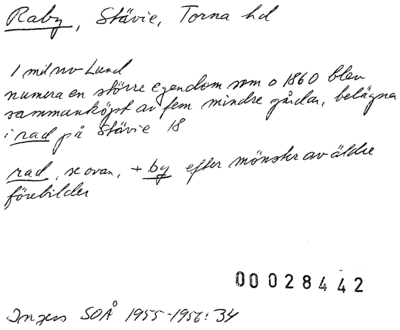 Raby, Stävie, Torna hd
1 mil nv Lund
numera en större egendom som o 1860 blev
sammanköpt av fem mindre gårdar, belägna
i rad på Stävie 18
rad, se ovan, + by efter mönster av äldre
förebilder
00028442
Ingers SOÅ 1955-1956: 34